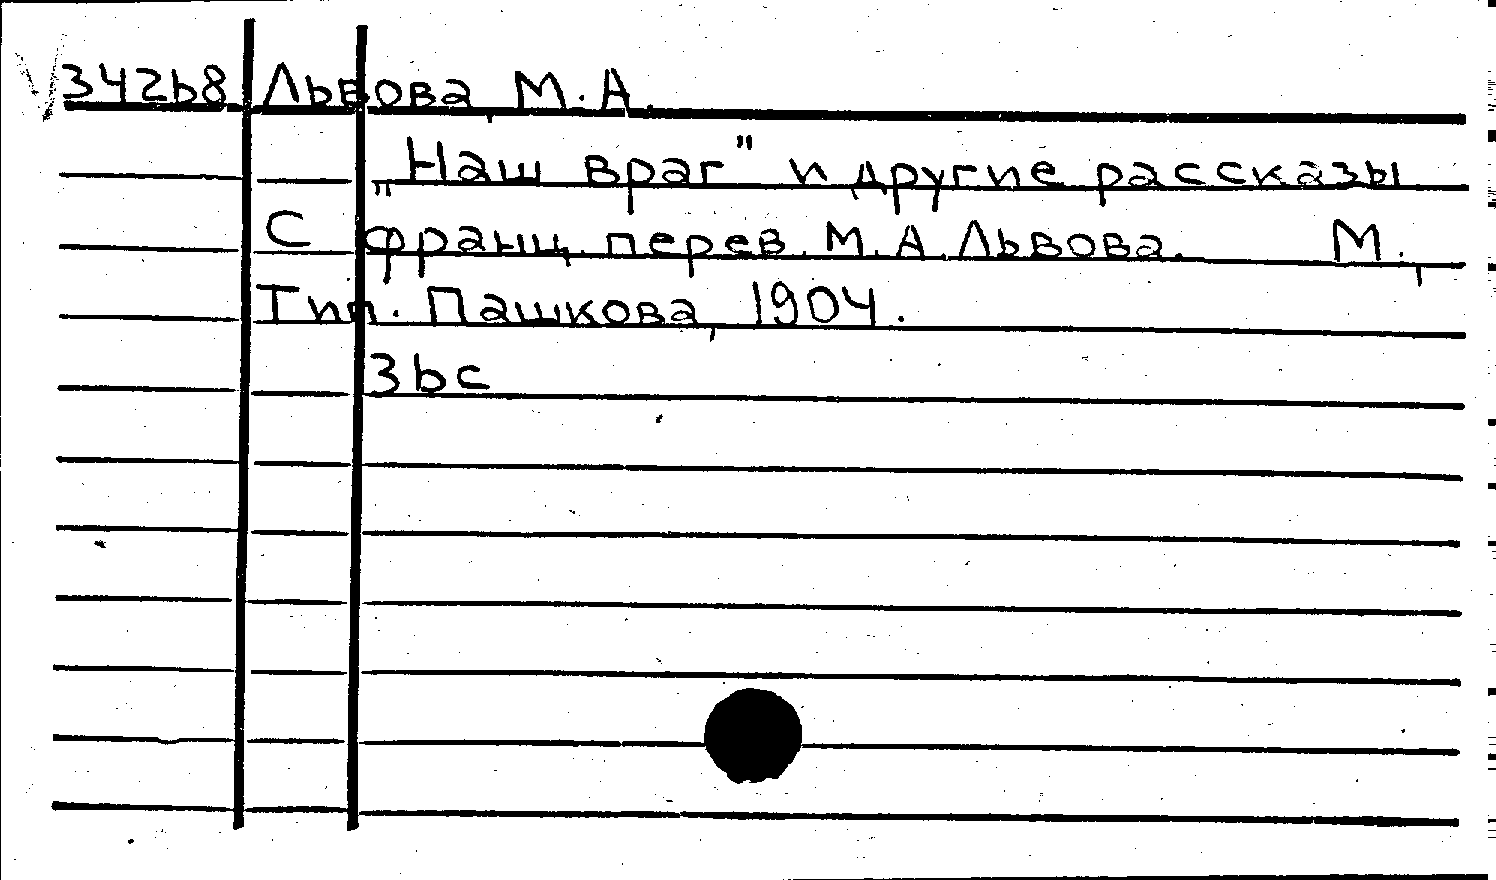 342b8 Львова, М.А.
„Наш враг" и другие рассказы
С франц. перев. М.А.Львова. М.,
Тип. Пашкова, 1904.
3bc